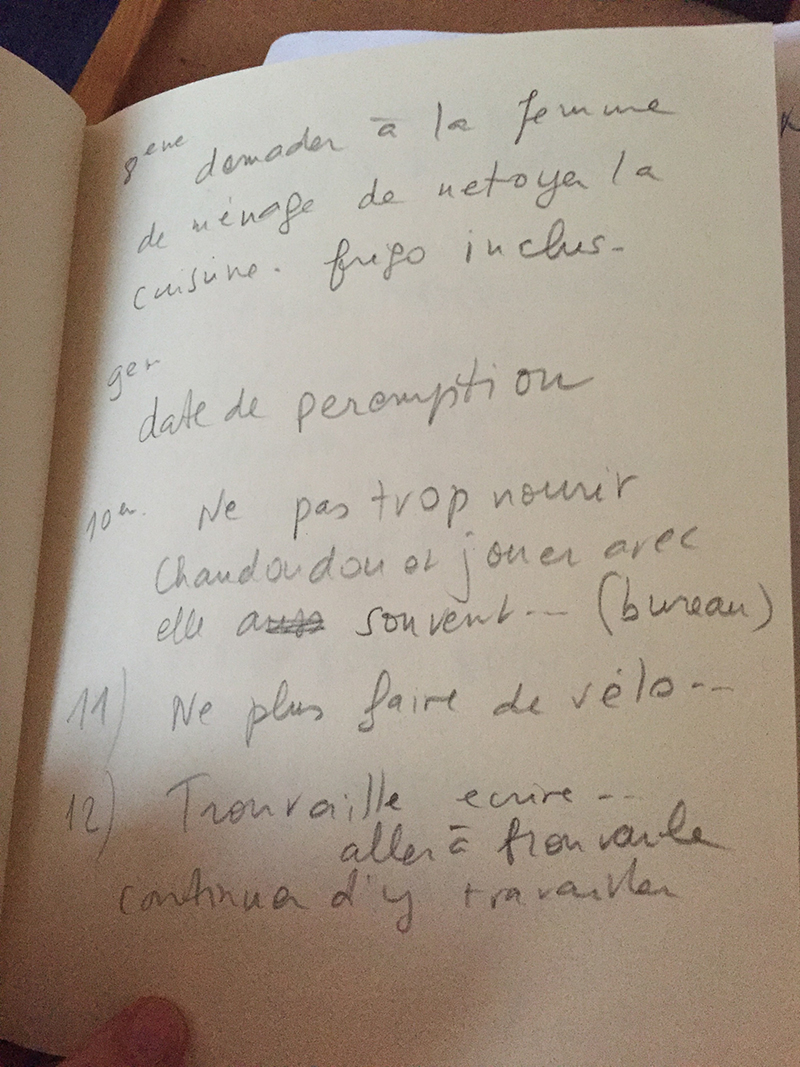 8eme demader à la femme
de ménage de netoyer la
cuisine. frigo inclus-
9em
date de peremption
10em. Ne pas trop nourir
Chandoudou et jouer avec
elle souvent... (bureau)
11) Ne plus faire de vélo...
12) Trouvaille ecrire...
aller à trouvaille
continuer d'y travailler